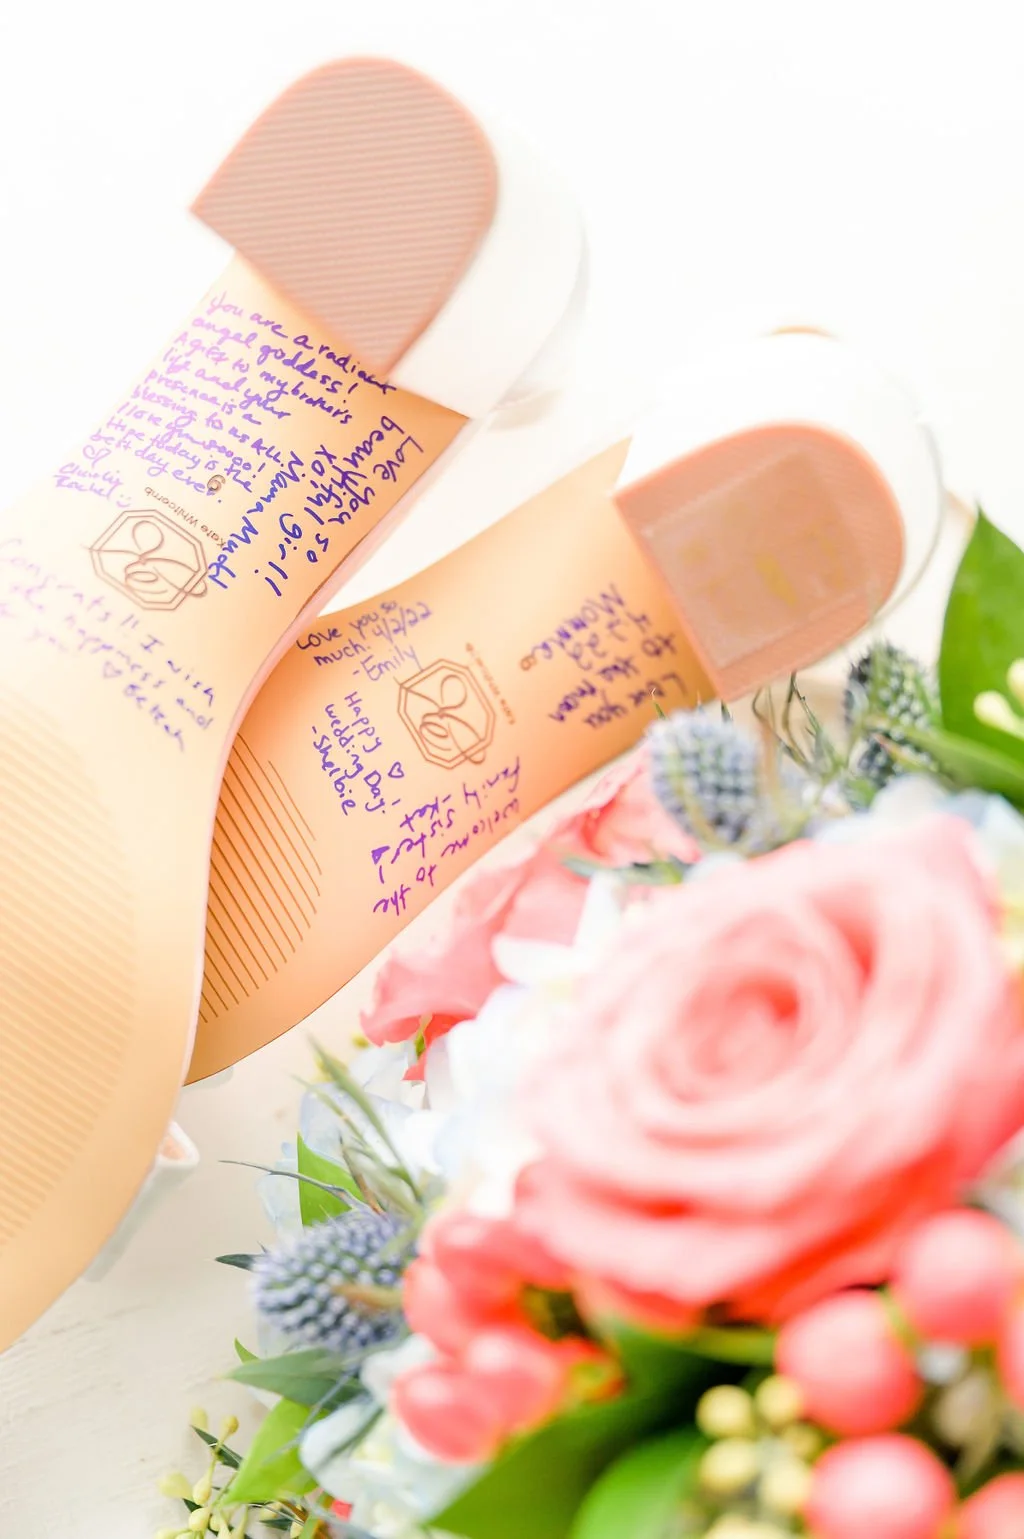 you are a radiant
angel goddess!
A gift to my brother's
life and your
presence is a
blessing to us ALL.
I love you soooo!
Hope today is the
best day ever.
Rachel
Love you so
beautiful girl!
XO,
Mama
9
Kate Whitcomb
Congrats!! I wish
happiness and
you
Love you so
much! 4/2/22
-Emily
Happy
wedding Day!
-Shelbie
Welcome to the
Family sister!
-Kat
Love you
to the moon
4.2.22
Mommie